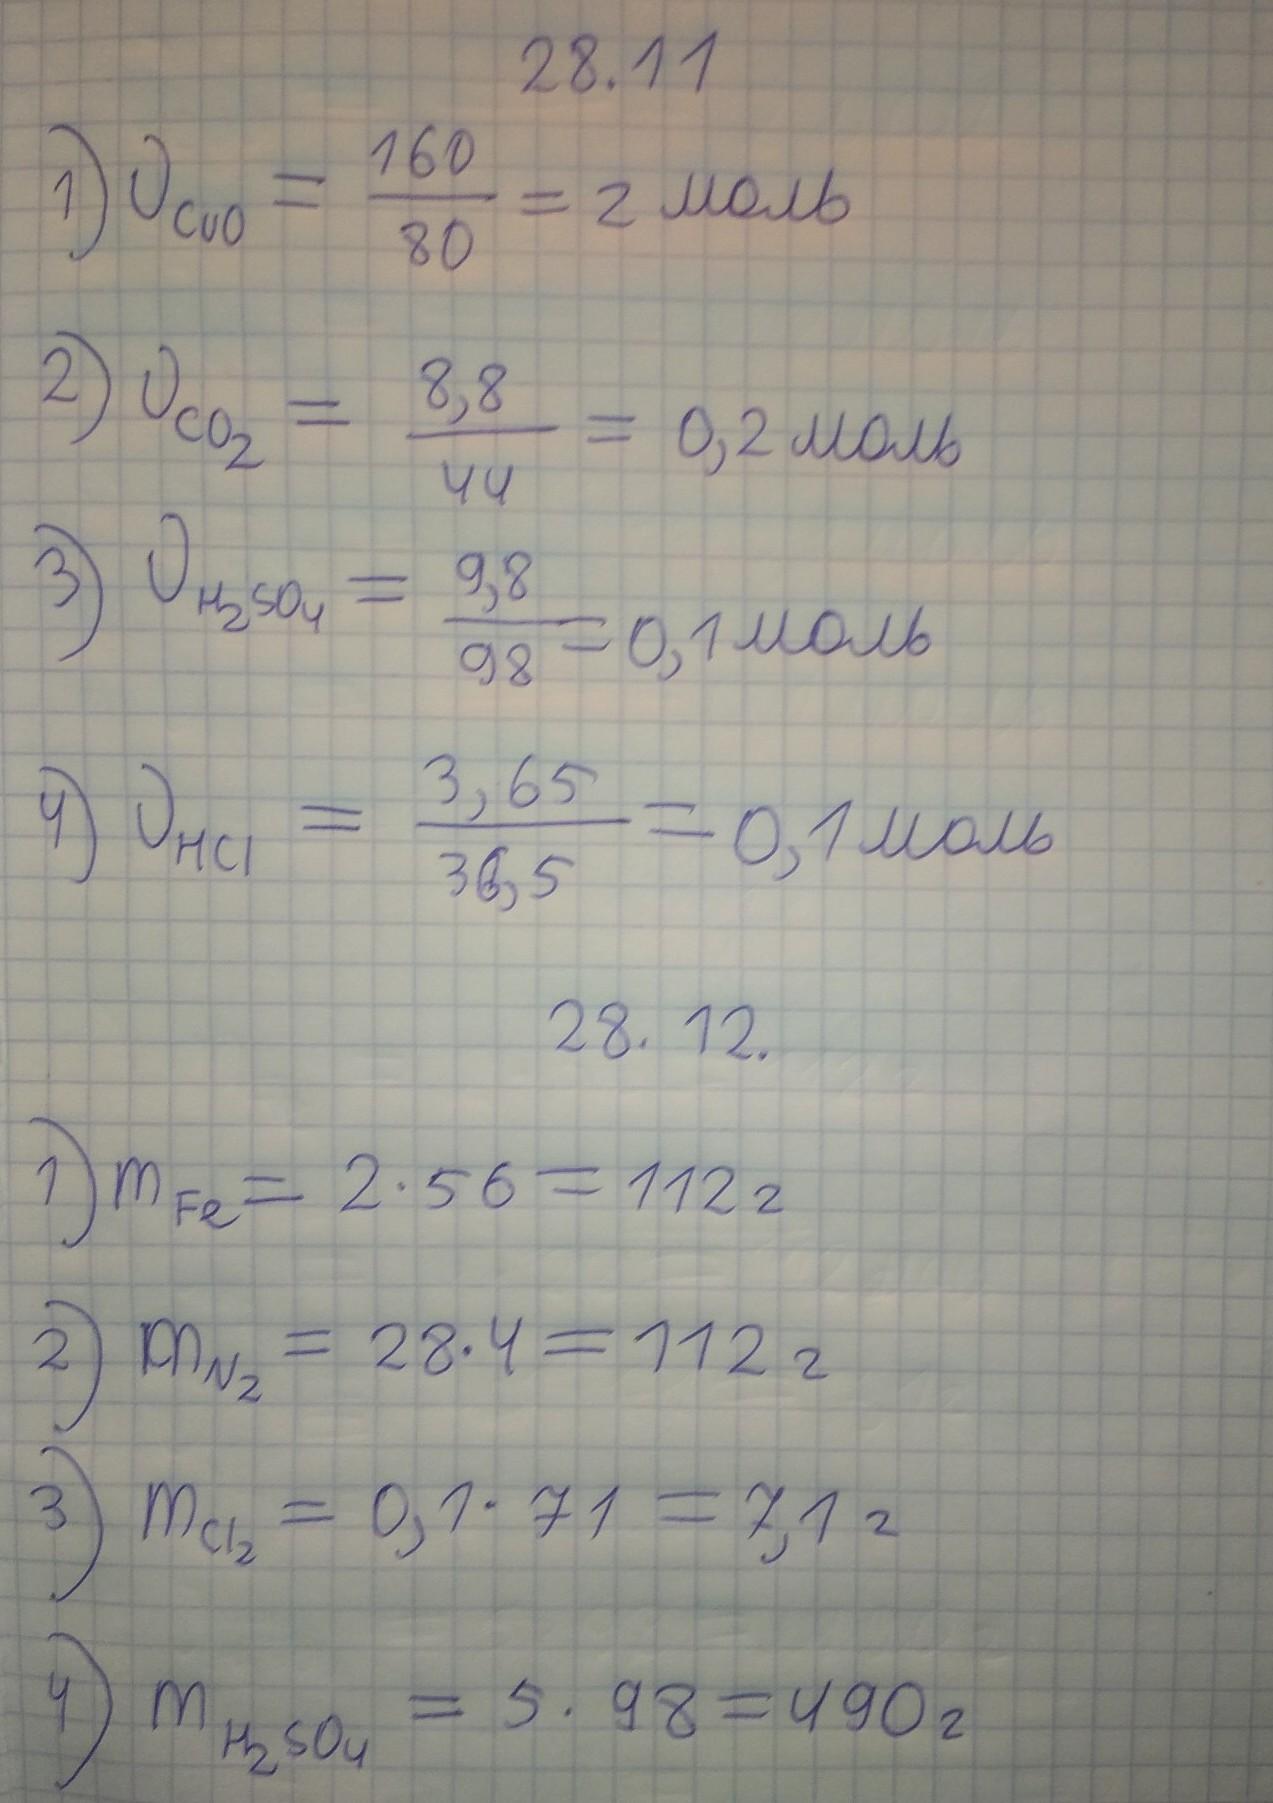 28.11
1) υ CuO = 160/80 = 2 моль
2) υ CO2 = 8,8/44 = 0,2 моль
3) υ H2SO4 = 9,8/98 = 0,1 моль
4) υ HCl = 3,65/36,5 = 0,1 моль
28.12.
1) m Fe = 2·56 = 112 г
2) m N2 = 28·4 = 112 г
3) m Cl2 = 0,1·71 = 7,1 г
4) m H2SO4 = 5·98 = 490 г